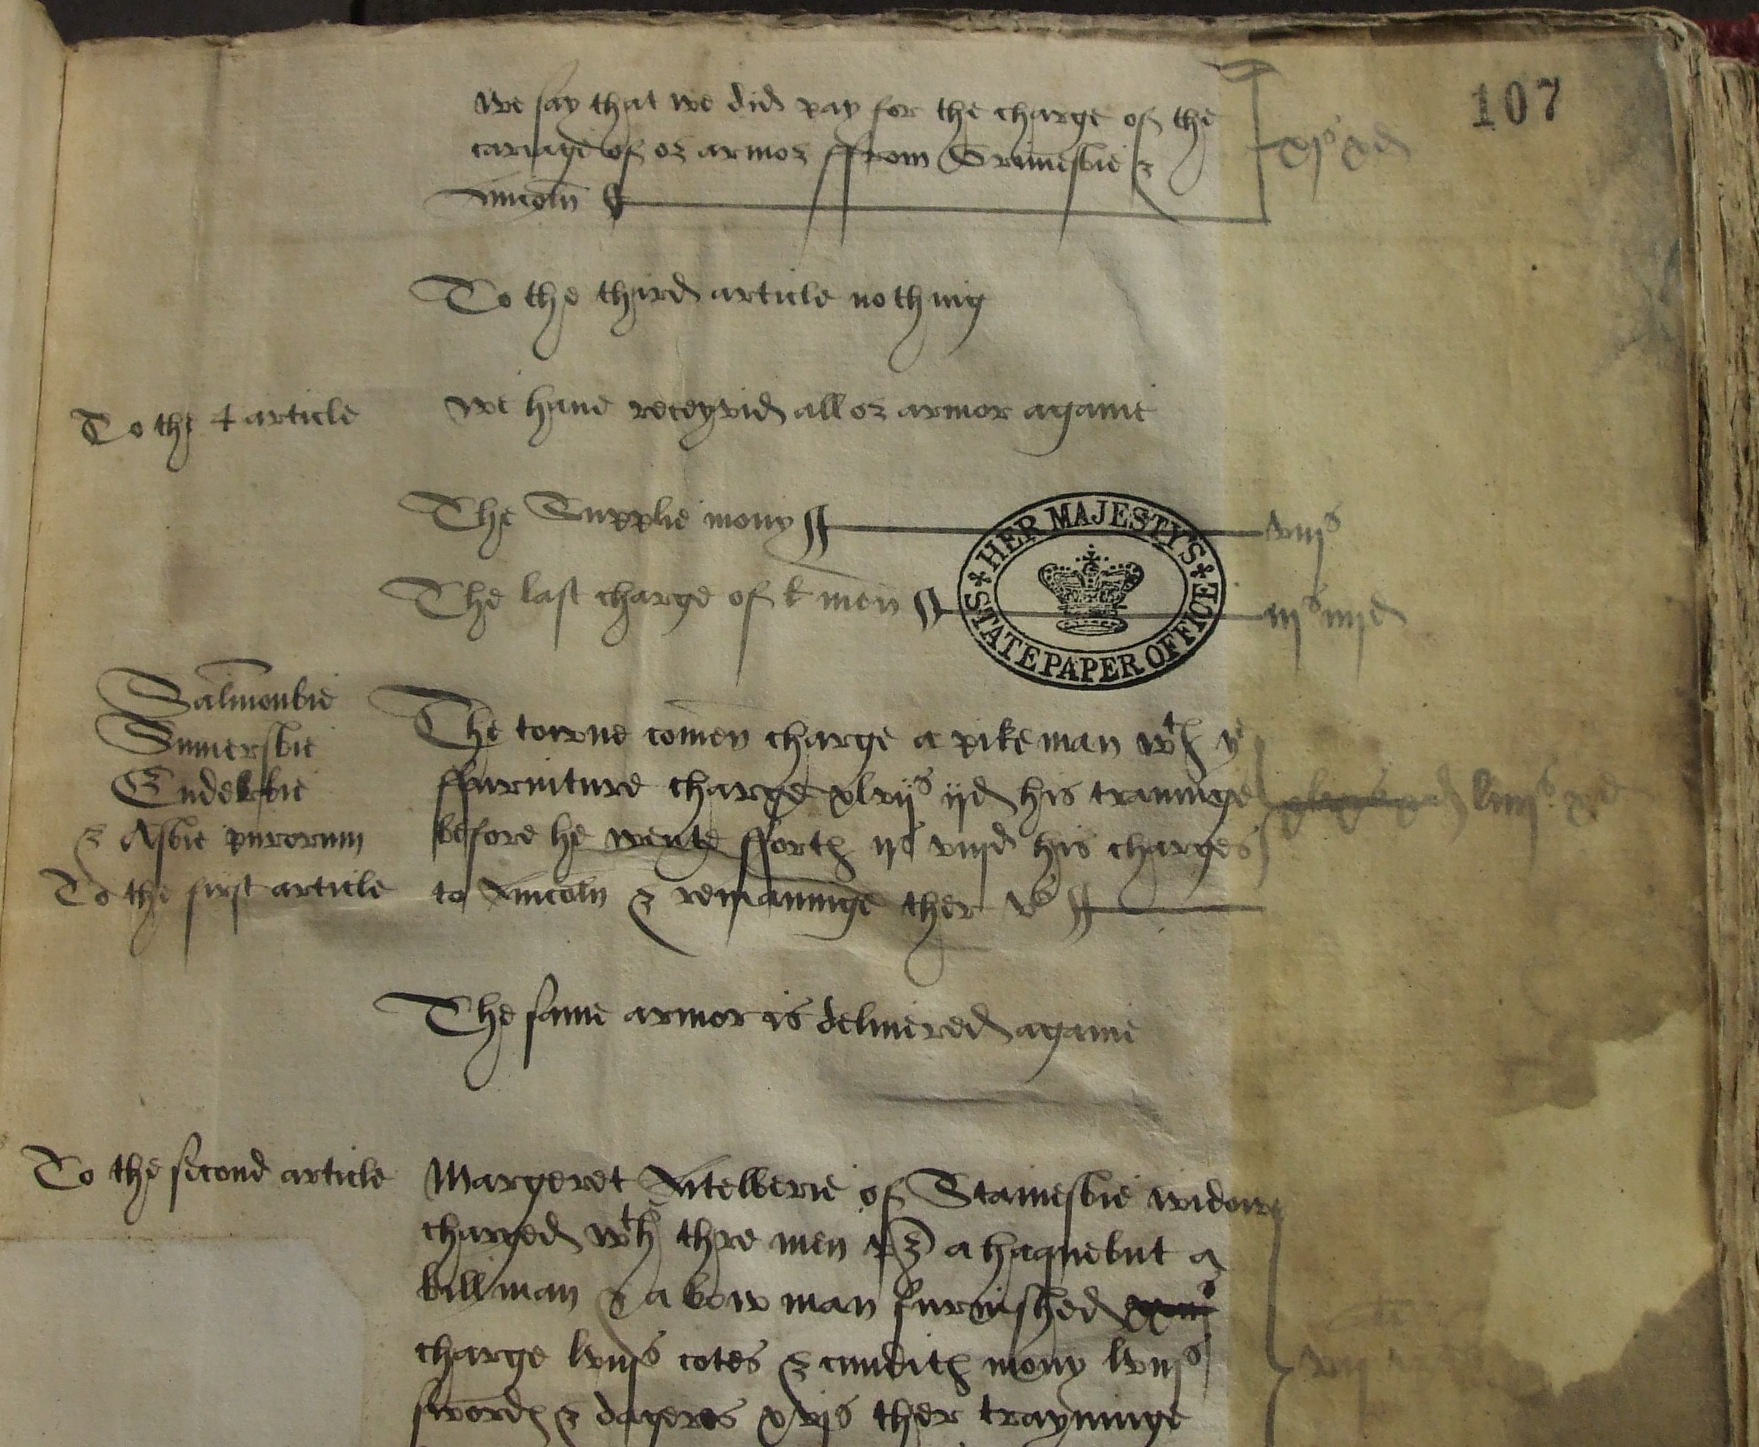 107
we say that we did pay for the charge of the
cariage of or armor ffrom Grimesbie &
lincoln
xjs xd
To the third article nothing
To the 4 article
we haue receyvid all or armor againe
The Supplie mony
viijs
The last charge of k men
iijs iiijd
HER MAJESTY'S STATE PAPER OFFICE
Salmonbie
Somersbie
Enderbie
& Asbie puerorum
To the first article
The towne comen charge a pike man wth ye
ffurniture charge xlvijs ijd his traininge
before he wente fforth ijs viijd his charges
to lincoln & remaininge ther vs
liiijs xd
The same armor is deliuered againe
To the second article
Margeret of Stainesbie widow
charged wth thre men a haquebut a
bill man & a bow man furnished
charge lviijs cotes & cundith mony lviijs
swordes & dageres xvjs ther trayninge